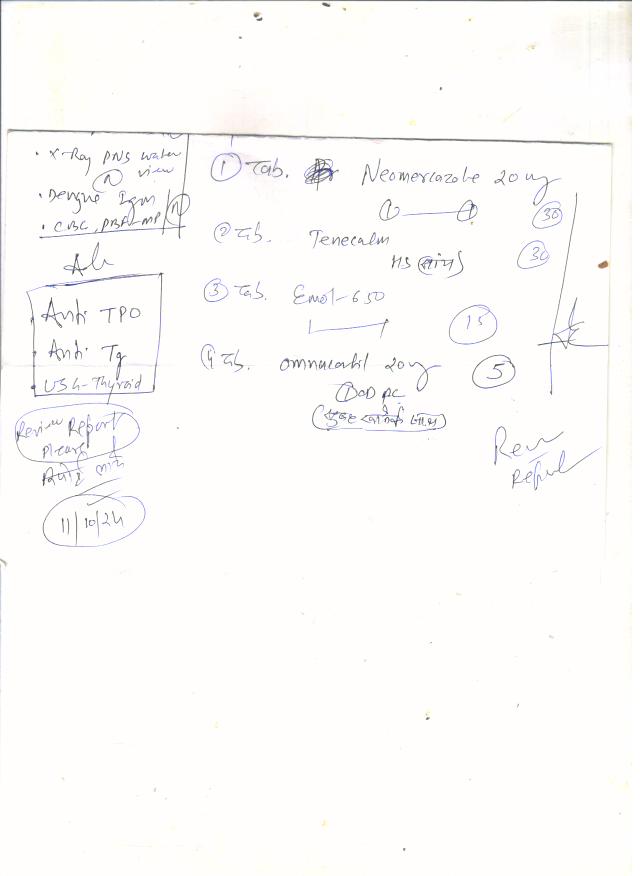 • X-Ray PNS water
view
(n)
• Dengue Igm
• CBC, PBF-MP (n)
Anti TPO
Anti Tg
USG-Thyroid
Review Report
please
11/10/24
① Tab. Neomercazole 20 mg
① ①
30
② Tab. Tenecalm
HS
30
③ Tab. Emol-650
15
④ Tab. omnacortil 20 mg
5
① OD PC